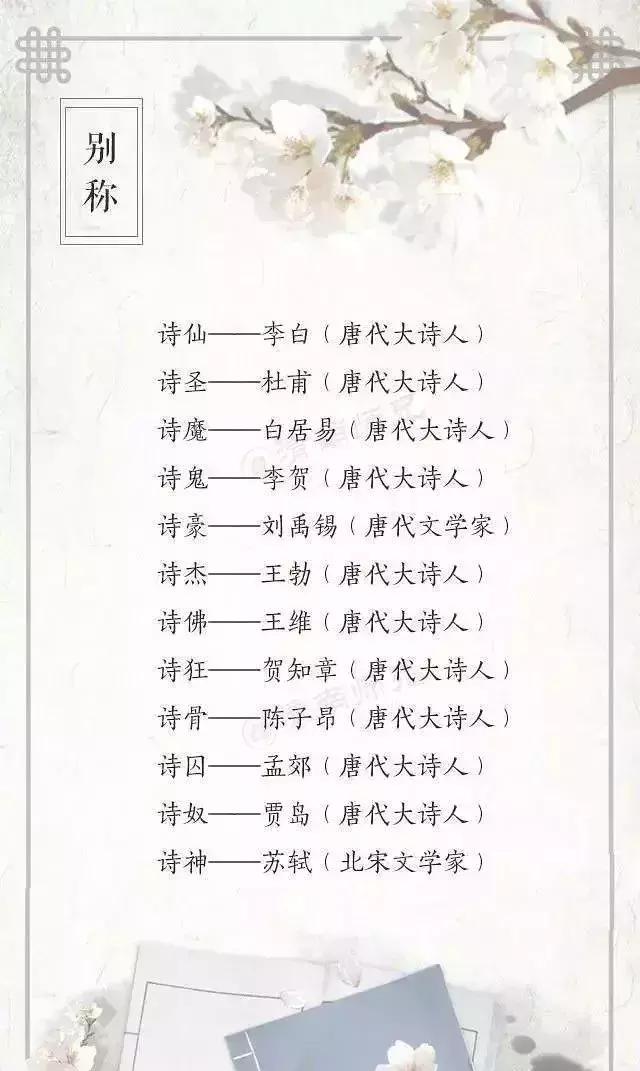 别称
诗仙——李白（唐代大诗人）
诗圣——杜甫（唐代大诗人）
诗魔——白居易（唐代大诗人）
诗鬼——李贺（唐代大诗人）
诗豪——刘禹锡（唐代文学家）
诗杰——王勃（唐代大诗人）
诗佛——王维（唐代大诗人）
诗狂——贺知章（唐代大诗人）
诗骨——陈子昂（唐代大诗人）
诗囚——孟郊（唐代大诗人）
诗奴——贾岛（唐代大诗人）
诗神——苏轼（北宋文学家）